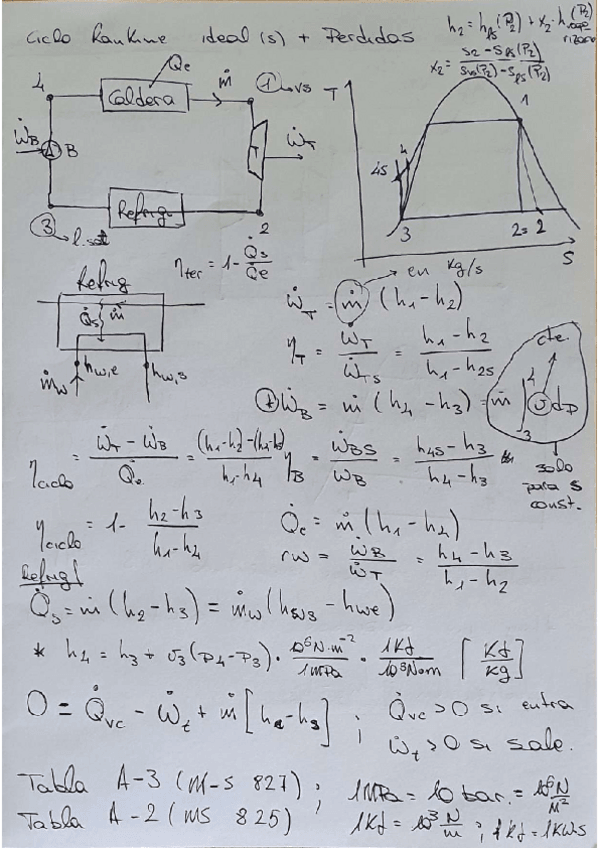 Ciclo Rankine ideal (s) + Perdidas
h₂ = hfs(P₂) + x₂ · h vapo rizano (P₂)
x₂ = (s₂ − sfs(P₂)) / (sv(P₂) − sfs(P₂))
4 Caldera Q̇e ṁ 1 → vs
ẆB B T ẆT
3 → l. sat Refrig 2
T 1 4 4s 3 2s 2 s
ηter = 1 − Q̇s/Q̇e
Refrig
Q̇s ṁ
ṁw hw,e hw,s
ẆT = ṁ (h₁ − h₂) → en kg/s
ηT = ẆT/ẆTs = (h₁ − h₂)/(h₁ − h₂s)
ẆB = ṁ (h₄ − h₃) = ṁ ∫₃⁴ v dp
cte. solo para s const.
ηciclo = (ẆT − ẆB)/Q̇e = ((h₁-h₂) − (h₄-h₃))/(h₁-h₄)
ηB = ẆBS/ẆB = (h₄s − h₃)/(h₄ − h₃) *
ηciclo = 1 − (h₂ − h₃)/(h₁ − h₄)
Q̇e = ṁ (h₁ − h₄)
rw = ẆB/ẆT = (h₄ − h₃)/(h₁ − h₂)
Refrig
Q̇s = ṁ (h₂ − h₃) = ṁw (hws − hwe)
* h₄ = h₃ + v₃ (P₄ − P₃) · 10⁶ N·m⁻²/1MPa · 1KJ/10³N·m [KJ/kg]
0 = Q̇vc − Ẇt + ṁ [he − hs] ; Q̇vc > 0 si entra
Ẇt > 0 si sale.
Tabla A-3 (M-S 827) ; 1MPa = 10 bar. = 10⁶ N/M²
Tabla A-2 (MS 825) 1KJ = 10³ N/m ; 1KJ = 1KW·S